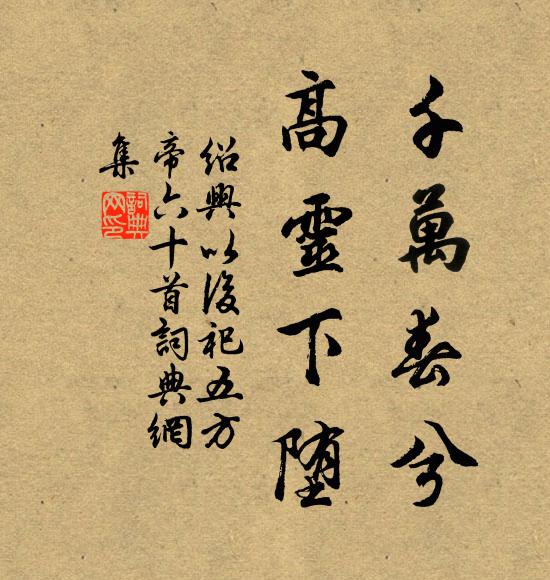 千萬春兮
高靈下墮
紹興以後祀五方
帝六十首詞典網
集
詞典
网印